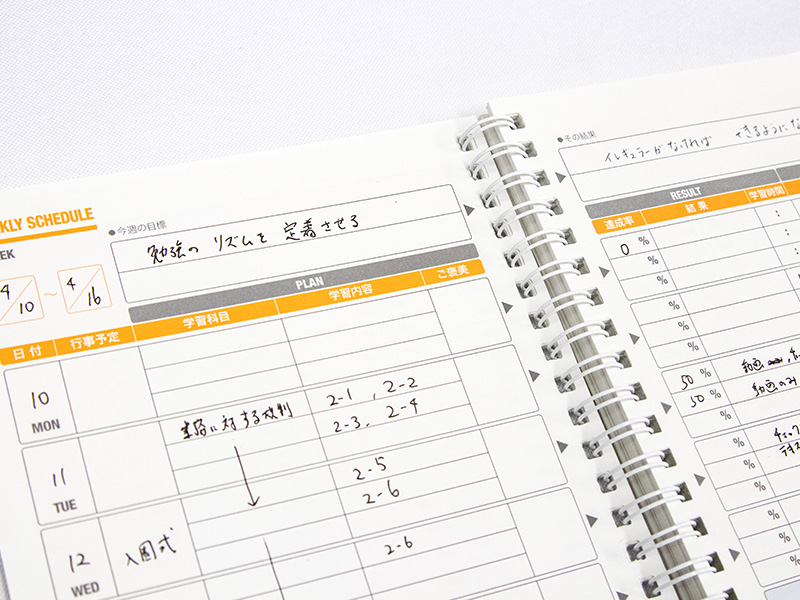 KLY SCHEDULE
EK
4/10 ～ 4/16
●今週の目標
勉強の リズムを 定着させる
PLAN
日付 行事予定 学習科目 学習内容 ご褒美
10
MON
11
TUE
に対する
2-1 , 2-2
2-3, 2-4
12
WED
入園式
2-5
2-6
2-6
●その結果
イレギュラーがなければ できるようにな
RESULT
達成率 結果 学習時間
0 %
%
%
:
:
%
%
%
50 %
50 %
%
動画
動画のみ
%
%
%
チェック
テキス
%
%
%